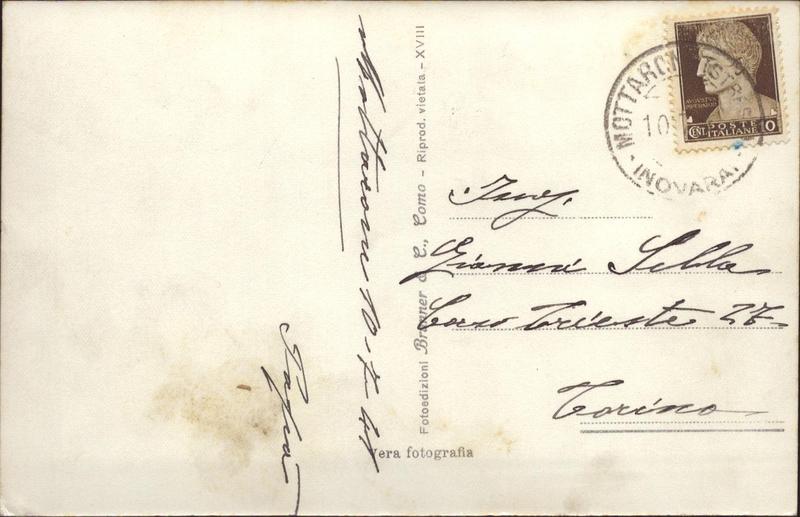 Mottarone 10-7-41
Papà
Fotoedizioni Brunner & C., Como - Riprod. vietata - XVIII
Vera fotografia
MOTTARONE
(NOVARA)
10
AVGVSTVS
IMPERATOR
CENT. POSTE ITALIANE 10
Ing.
Gianni Sella
Corso Trieste 27
Torino